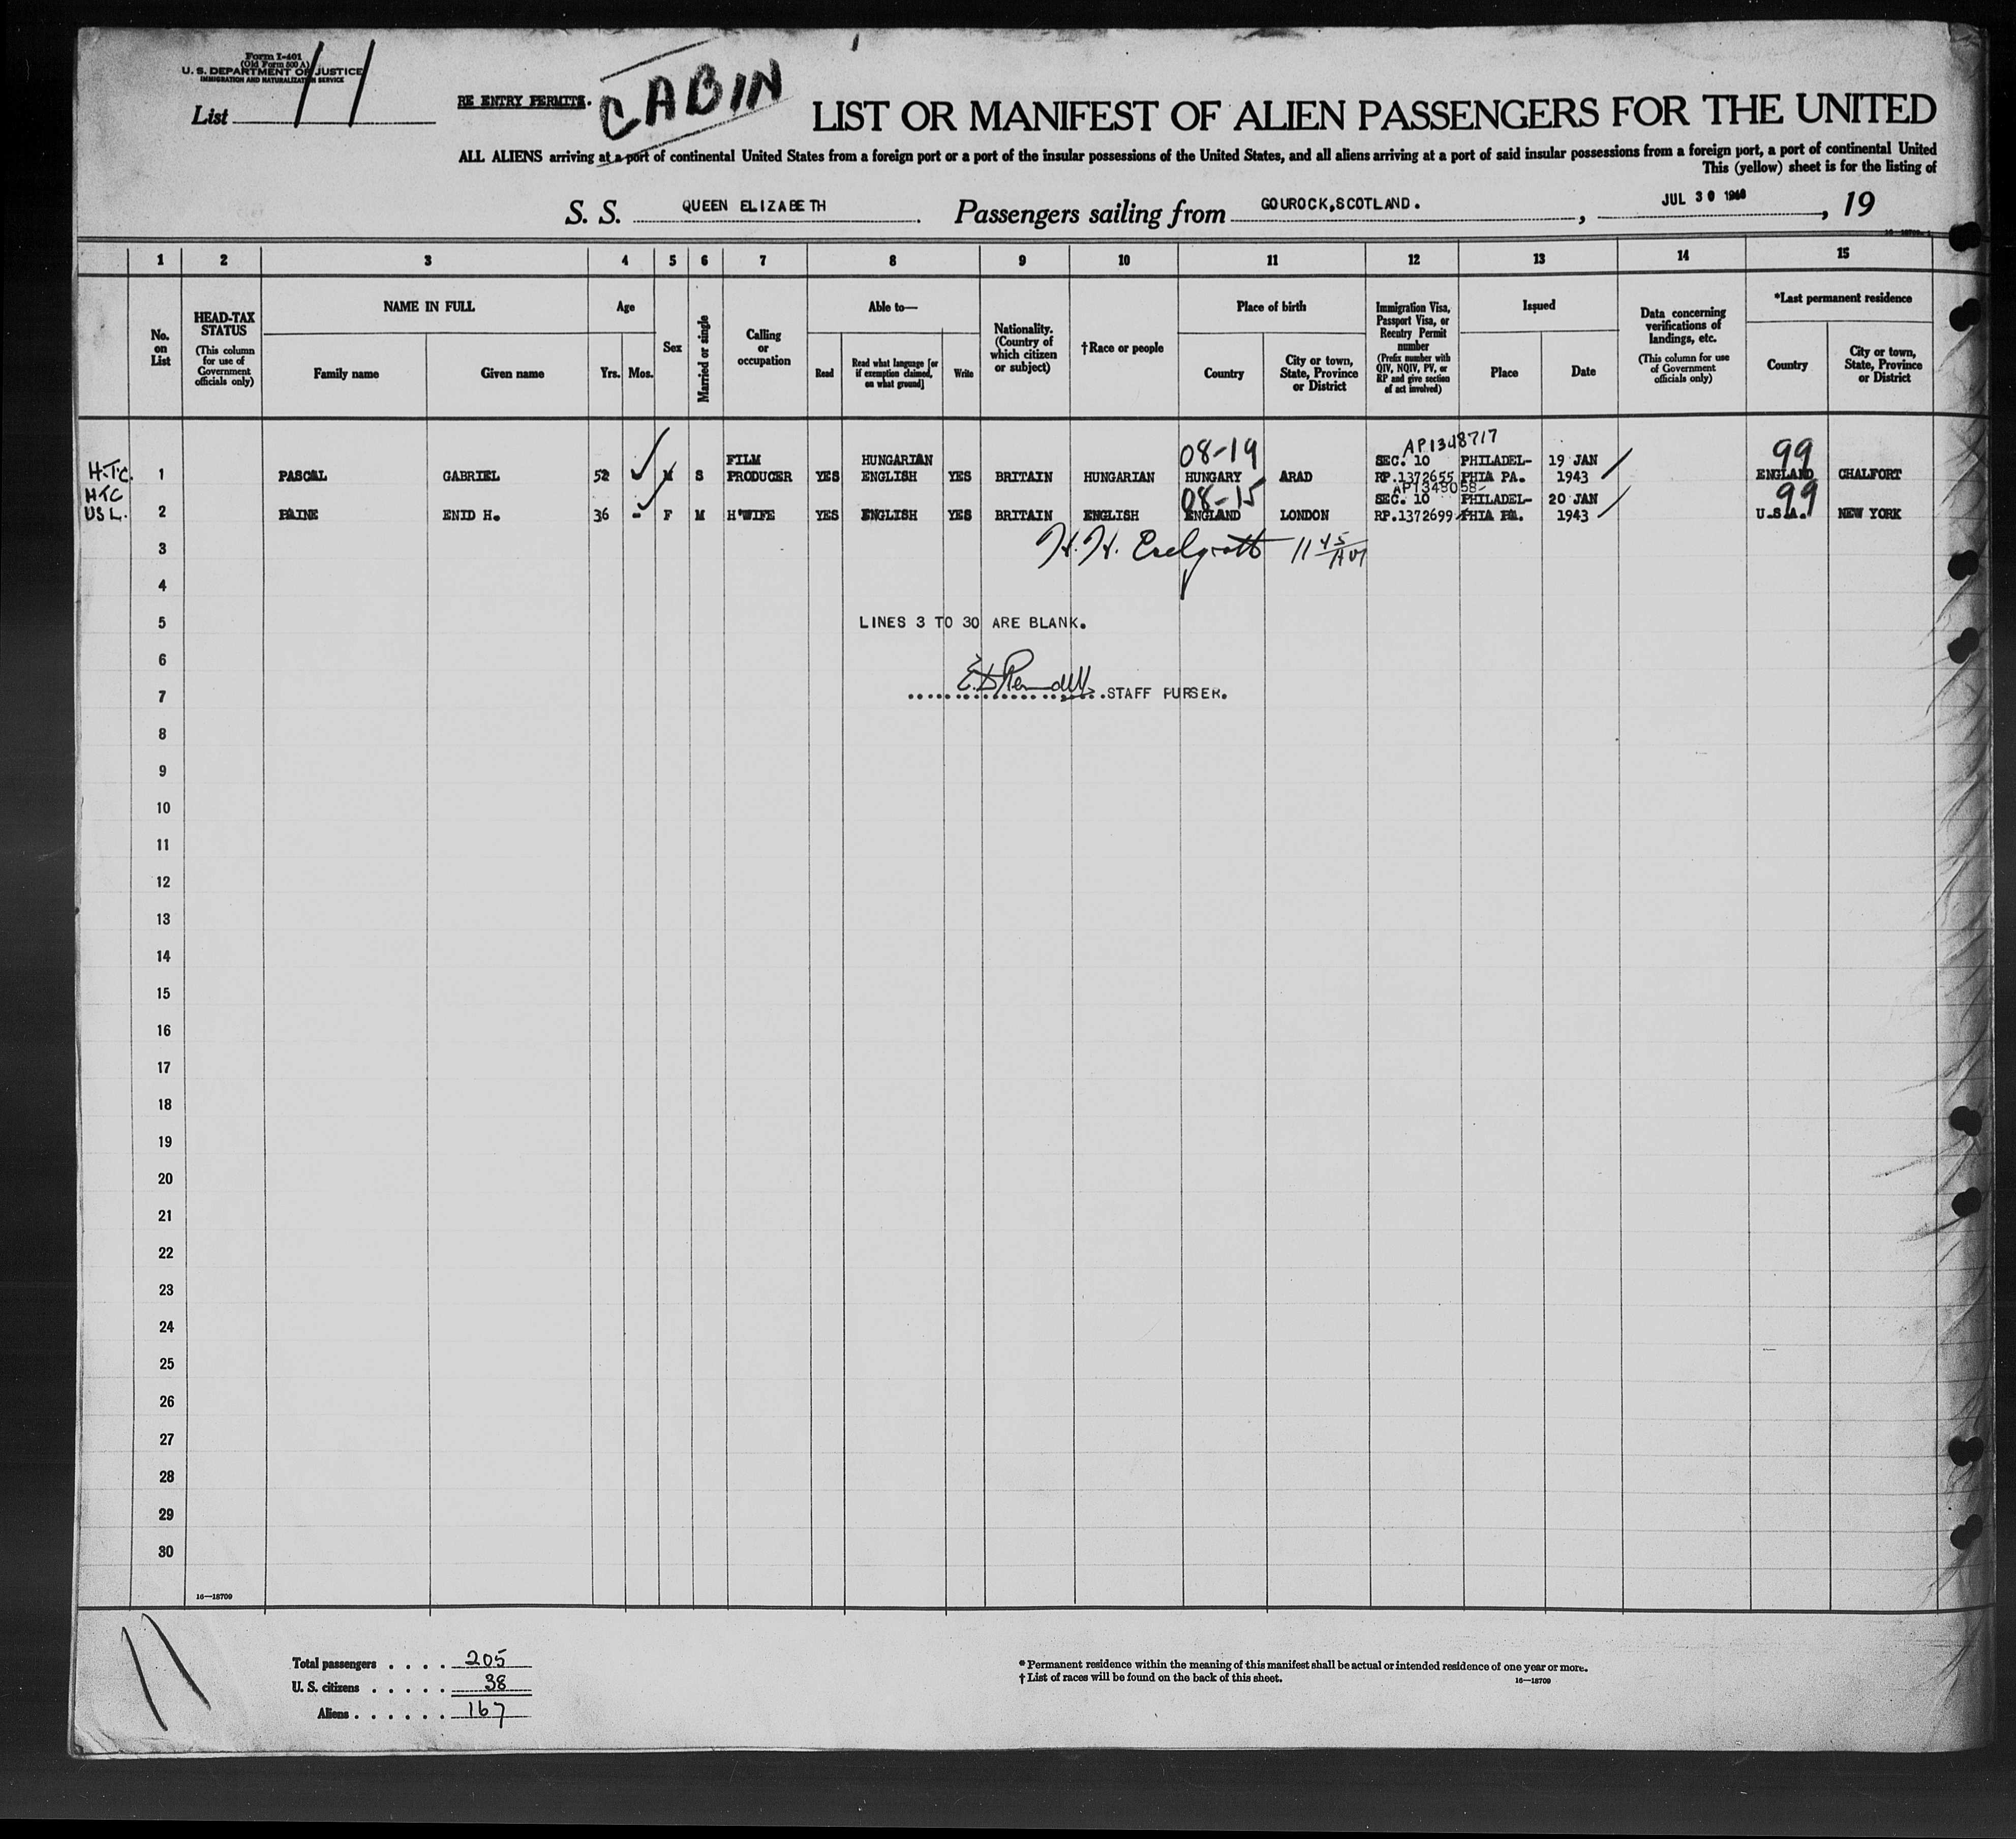 Form I-401
(Old Form 500 A)
U. S. DEPARTMENT OF JUSTICE
IMMIGRATION AND NATURALIZATION SERVICE
List 11
RE ENTRY PERMITS.
CABIN
LIST OR MANIFEST OF ALIEN PASSENGERS FOR THE UNITED
ALL ALIENS arriving at a port of continental United States from a foreign port or a port of the insular possessions of the United States, and all aliens arriving at a port of said insular possessions from a foreign port, a port of continental United
This (yellow) sheet is for the listing of
S. S. QUEEN ELIZABETH. Passengers sailing from GOUROCK, SCOTLAND. , JUL 30 , 19
1 2 3 4 5 6 7 8 9 10 11 12 13 14 15
No. on List
HEAD-TAX STATUS (This column for use of Government officials only)
NAME IN FULL
Family name Given name
Age
Yrs. Mos.
Sex
Married or single
Calling or occupation
Able to—
Read
Read what language [or if exemption claimed, on what ground]
Write
Nationality. (Country of which citizen or subject)
†Race or people
Place of birth
Country
City or town, State, Province or District
Immigration Visa, Passport Visa, or Reentry Permit number (Prefix number with QIV, NQIV, PV, or RP and give section of act involved)
Issued
Place Date
Data concerning verifications of landings, etc. (This column for use of Government officials only)
*Last permanent residence
Country
City or town, State, Province or District
08-19 AP1348717 99
FILM HUNGARIAN SEC. 10 PHILADEL- 19 JAN
H.T.C. 1 PASCAL GABRIEL 52 M S PRODUCER YES ENGLISH YES BRITAIN HUNGARIAN HUNGARY ARAD RP.1372655 PHIA PA. 1943 ENGLAND CHALFORT
HTC 08-15 AP1348058 99
SEC. 10 PHILADEL- 20 JAN
USL. 2 PAINE ENID H. 36 - F M H'WIFE YES ENGLISH YES BRITAIN ENGLISH ENGLAND LONDON RP.1372699 PHIA PA. 1943 U.S.A. NEW YORK
3 H. H. 11 45/AM
4
5 LINES 3 TO 30 ARE BLANK.
6
7 STAFF PURSER.
8
9
10
11
12
13
14
15
16
17
18
19
20
21
22
23
24
25
26
27
28
29
30
16—18709
11
Total passengers . . . . 205
U. S. citizens . . . . . 38
Aliens . . . . . . 167
* Permanent residence within the meaning of this manifest shall be actual or intended residence of one year or more.
† List of races will be found on the back of this sheet.
16—18709